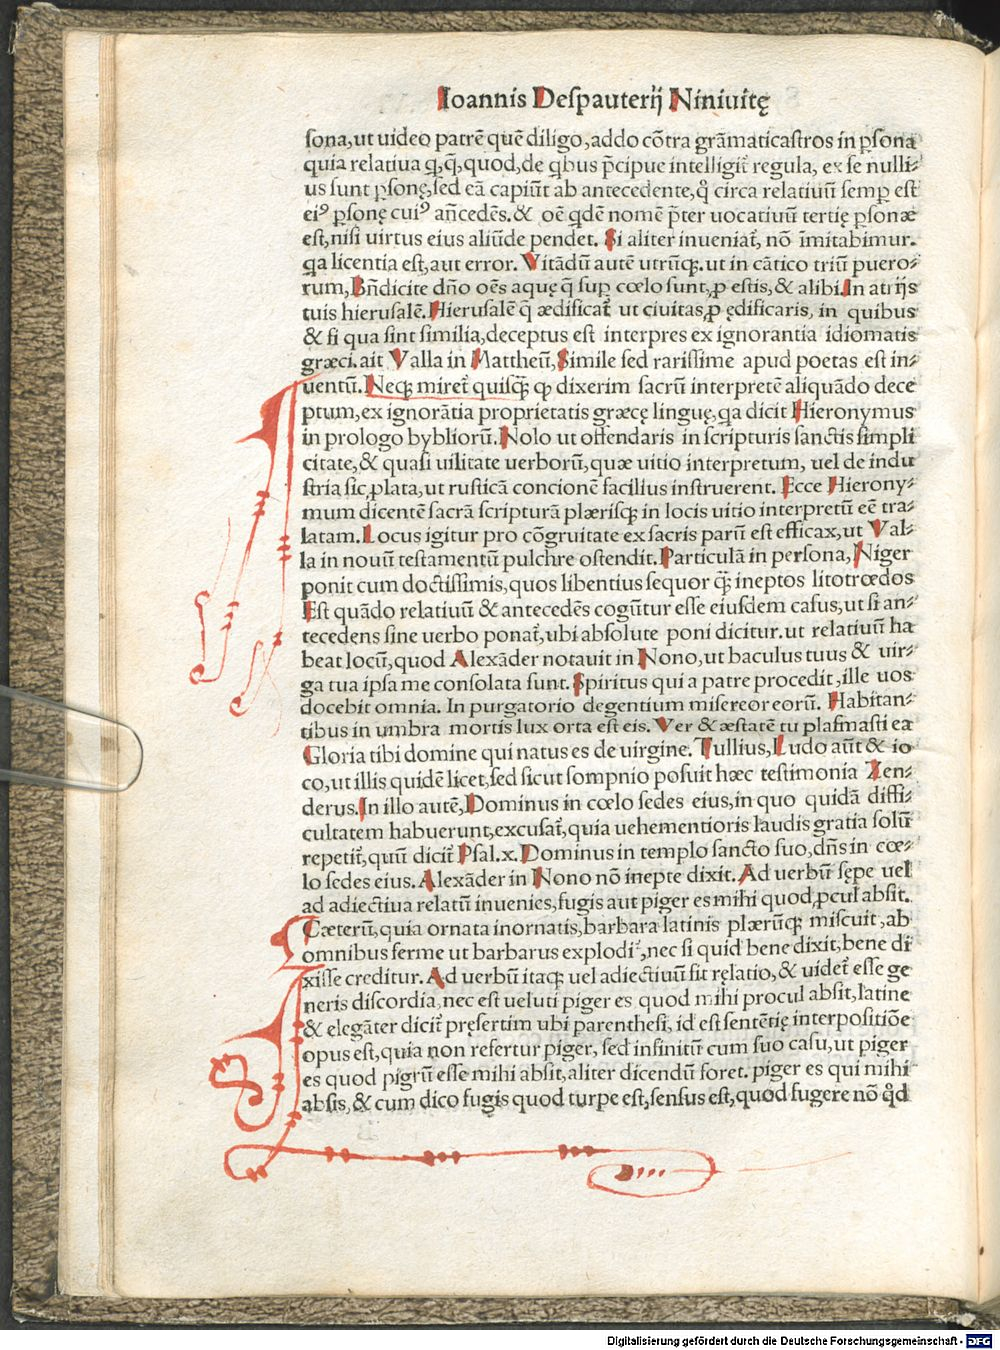 Ioannis Despauterij Niniuitę
sona,ut uideo patrē quē diligo,addo cōtra grāmaticastros in ꝑsona
quia relatiua q,q̄,quod,de qbus p̄cipue intelligit̄ regula, ex se nulli-
us sunt ꝑsonę,sed eā capiūt ab antecedente,q̊ circa relatiuū semꝑ est
eiꝰ ꝑsonę cuiꝰ an̄cedēs.& oē qdē nomē p̄ter uocatiuū tertię ꝑsonæ
est,nisi uirtus eius aliūde pendet. Si aliter inueniat̄, nō īmitabimur.
qa licentia est,aut error. Vitādū autē utrūqꝫ.ut in cātico triū puero-
rum,Bn̄dicite dn̄o oēs aquę q̄ suꝑ cœlo sunt,ꝓ estis,& alibi.In atrijs
tuis hierusalē.Hierusalē q̄ ædificat̄ ut ciuitas,ꝓ ędificaris, in quibus
& si qua sint similia,deceptus est interpres ex ignorantia idiomatis
græci.ait Valla in Mattheū,Simile sed rarissime apud poetas est in-
uentū.Neqꝫ miret̄ quisq̄ꝫ ꝙ dixerim sacrū interpretē aliquādo dece
ptum,ex ignorātia proprietatis græcę linguę,qa dicit Hieronymus
in prologo bybliorū.Nolo ut offendaris in scripturis sanctis simpli
citate,& quasi uilitate uerborū,quæ uitio interpretum, uel de indu
stria sic ꝓlata,ut rusticā concionē facilius instruerent. Ecce Hierony-
mum dicentē sacrā scripturā plærisqꝫ in locis uitio interpretū eē tra-
latam.Locus igitur pro cōgruitate ex sacris parū est efficax,ut Val-
la in nouū testamentū pulchre ostendit.Particulā in persona,Niger
ponit cum doctissimis,quos libentius sequor q̄ꝫ ineptos litotrœdos
Est quādo relatiuū & antecedēs cogūtur esse eiusdem casus,ut si an-
tecedens sine uerbo ponat̄,ubi absolute poni dicitur.ut relatiuū ha
beat locū,quod Alexāder notauit in Nono,ut baculus tuus & uir-
ga tua ipsa me consolata sunt.Spiritus qui a patre procedit,ille uos
docebit omnia. In purgatorio degentium misereor eorū. Habitan-
tibus in umbra mortis lux orta est eis.Ver & æstatē tu plasmasti ea
Gloria tibi domine qui natus es de uirgine.Tullius,Ludo aūt & io
co,ut illis quidē licet,sed sicut sompnio posuit hæc testimonia Zen-
derus.In illo autē,Dominus in cœlo sedes eius,in quo quidā diffi-
cultatem habuerunt,excusat̄,quia uehementioris laudis gratia solū
repetit̄,quū dicit̄ Psal.x.Dominus in templo sancto suo,dn̄s in cœ-
lo sedes eius.Alexāder in Nono nō inepte dixit.Ad uerbū sępe uel
ad adiectiua relatū inuenies,fugis aut piger es mihi quod,ꝓcul absit.
Cæterū,quia ornata inornatis,barbara latinis plærūqꝫ miscuit,ab
omnibus ferme ut barbarus explodit̄,nec si quid bene dixit,bene di
xisse creditur.Ad uerbū itaqꝫ uel adiectiuū sit ręlatio,& uidet̄ esse ge
neris discordia,nec est ueluti piger es quod mihi procul absit,latine
& elegāter dicit̄ pręsertim ubi parenthesi, id est sentētię interpositiōe
opus est,quia non refertur piger, sed infinitū cum suo casu,ut piger
es quod pigrū esse mihi absit,aliter dicendū foret. piger es qui mihi
absis,& cum dico fugis quod turpe est,sensus est,quod fugere nō q̊d
Digitalisierung gefördert durch die Deutsche Forschungsgemeinschaft - DFG